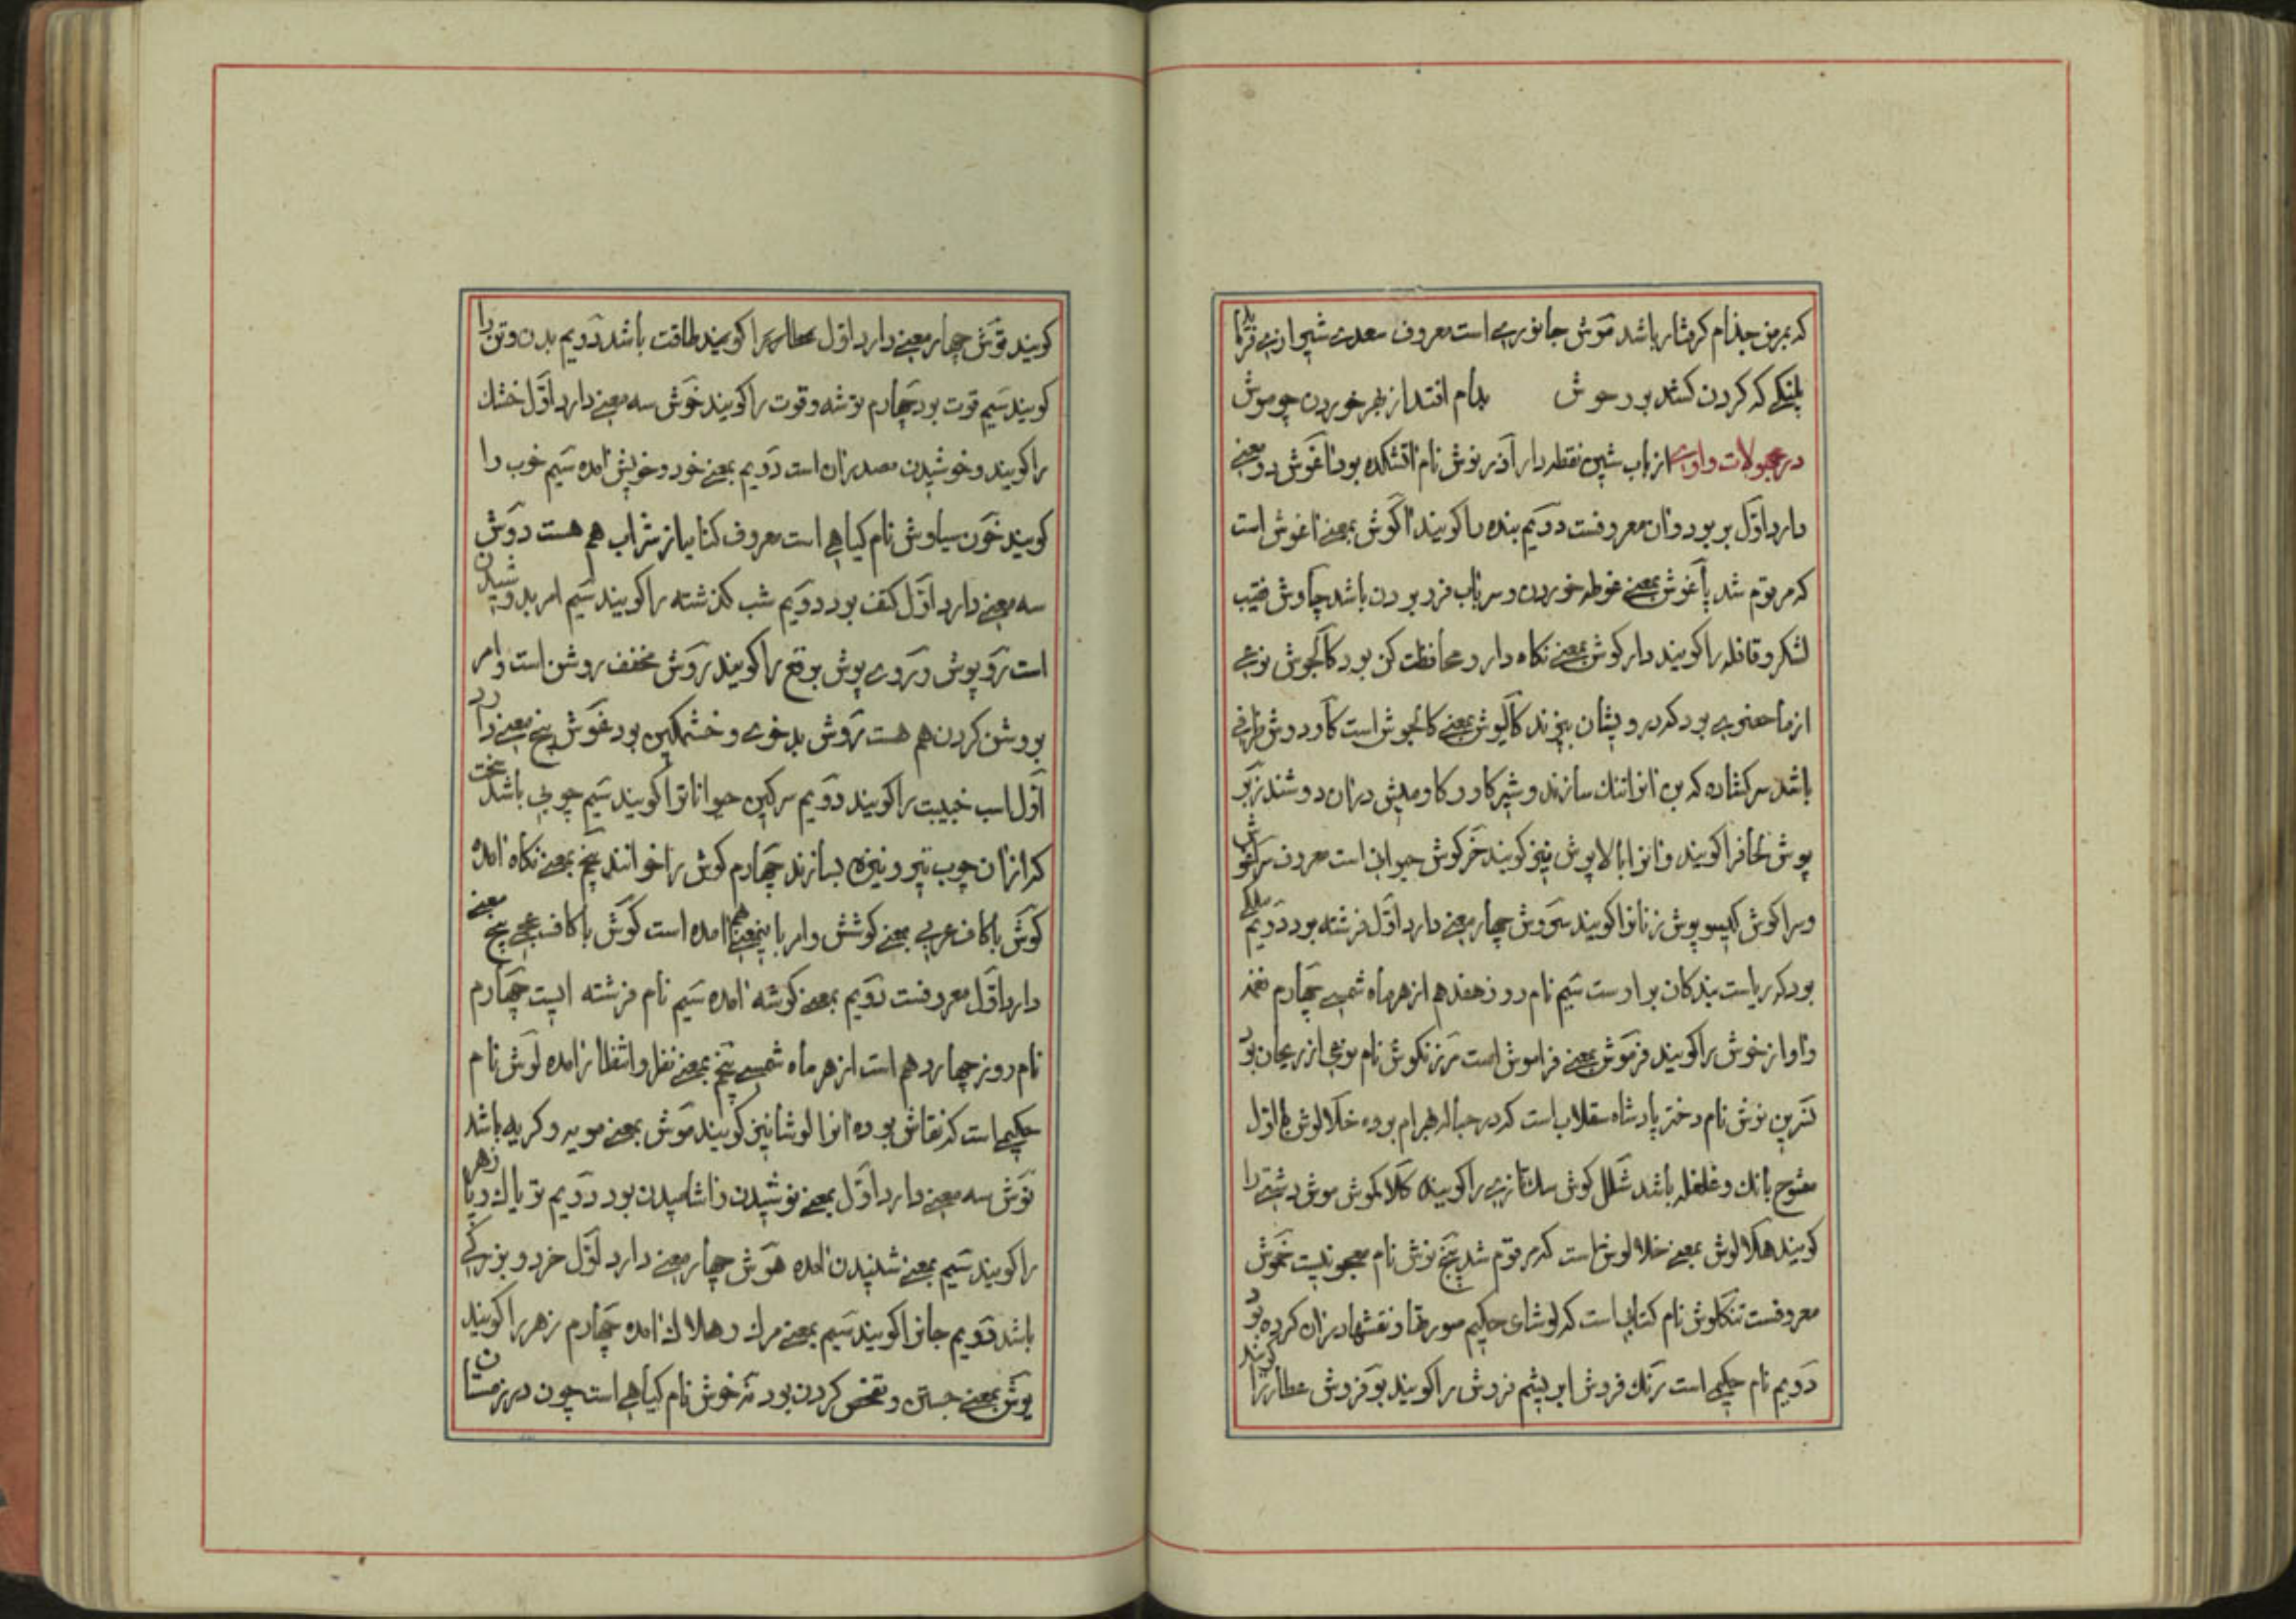 که بمرض جذام کرفتار باشد موش جانوریی است معروف سعدی شیرازی فرماید
پلنکی که کردن کشد بر وحوش بدام افتد از بهر خوردن چو موش
در مجهولات واوی از باب شین نقطه دار آذر نوش نام آتشکده بود آغوش دو معنی
دارد اول بر بود وان معروفست دویم بنده را کویند آکوش بمعنی آغوش است
که مرقوم شد پاغوش بمعنی غوطه خوردن و سر باب فرو بردن باشد چاوش نقیب
لشکر و قافله را کویند دار کوش بمعنی نکاه دار و محافظت کن بود کالجوش نوعی
از ماحضری بود که درویشان پزند کالیوش بمعنی کالجوش است کاو دوش ظرفی
باشد سر کشاده که بن انرا تنک سازند و شیر کاو و کاومیش دران دوشند زبر
پوش لحاف را کویند و انرا بالا پوش نیز کویند خرکوش حیوانی است معروف سراغوش
و سراکوش کیسو پوش زنانرا کویند سروش چهار معنی دارد اول فرشته بود دویم ملکی
بود که ریاست بندکان بر اوست سیم نام روز هفدهم از هر ماه شمسی چهارم نغمه
و آواز خوش را کویند فرموش بمعنی فراموش است مرزنکوش نام نوعی از ریحان بود
نسرین نوش نام دختر پادشاه سقلاب است که در حباله بهرام بوده خلالوش با اول
مفتوح بانک و غلغله باشد شلل کوش سک تازی را کویند کلاکموش موش دشتی را
کویند هلالوش بمعنی خلالوش است که مرقوم شد پنج نوش نام معجونیست خموش
معروفست تنکلوش نام کتابی است که لوشای حکیم صورتها و نقشها دران کرده بود
دویم نام حکیمی است رنک فروش ابریشم فروش را کویند بو فروش عطار را کویند
کویند توش چهار معنی دارد اول را کویند طاقت باشد دویم بدن و تن را
کویند سیم قوت بود چهارم توشه و قوت را کویند خوش سه معنی دارد اول خشک
را کویند و خوشیدن مصدر ان است دویم بمعنی خود و خویش آمده سیم خوب را
کویند خون سیاوش نام کیاهی است معروف کنایه از شراب هم هست دوش
سه معنی دارد اول کتف بود دویم شب کذشته را کویند سیم امر بدوشیدن
است رو پوش و روی پوش برقع را کویند روش مخفف روشن است و امر
بروشن کردن هم هست زوش بد خوی و خشمکین بود غوش پنج معنی دارد
اول اسب خبیبت را کویند دویم سرکین حیوانانرا کویند سیم چوبی باشد سخت
که ازان چوب تیر و نیزه بسازند چهارم کوش را خوانند پنجم بمعنی نکاه آمده
کوش با کاف عربی بمعنی کوشش و امر باینمعنی هم آمده است کوش با کاف عجمی پنج معنی
دارد اول معروفست دویم بمعنی کوشه آمده سیم نام فرشته ایست چهارم
نام روز چهاردهم است از هر ماه شمسی پنجم بمعنی نظر و انتظار آمده لوش نام
حکیمی است که نقاش بوده انرا لوشا نیز کویند موش بمعنی مویه و کریه باشد
نوش سه معنی دارد اول بمعنی نوشیدن و اشامیدن بود دویم تریاک و پازهر
را کویند سیم بمعنی شنیدن آمده هوش چهار معنی دارد اول خرد و بزرکی
باشد دویم جانرا کویند سیم بمعنی مرک و هلاک آمده چهارم زهر را کویند
یوش بمعنی جستن و تفحص کردن بود نه خوش نام کیاهی است چون در زمستان